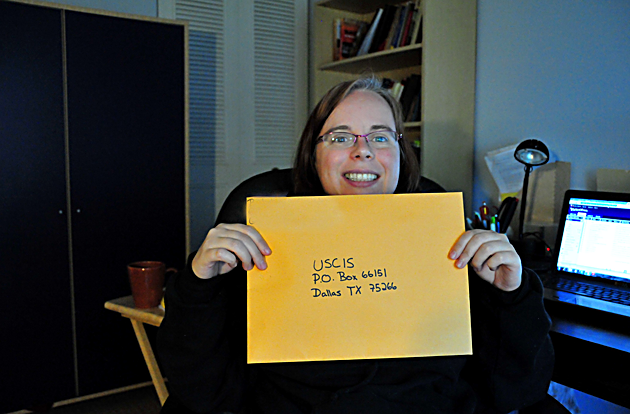 USCIS
P.O. Box 66151
Dallas TX 75266